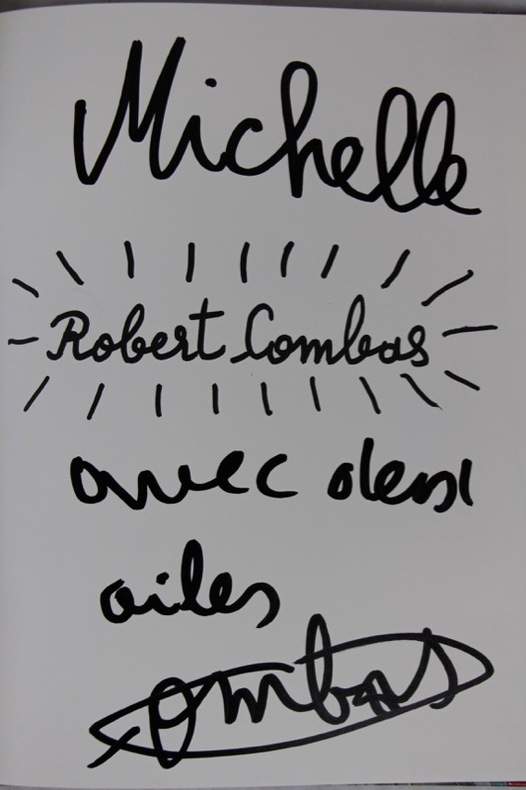 Michelle
Robert Combas
avec deux
ailes
Combas